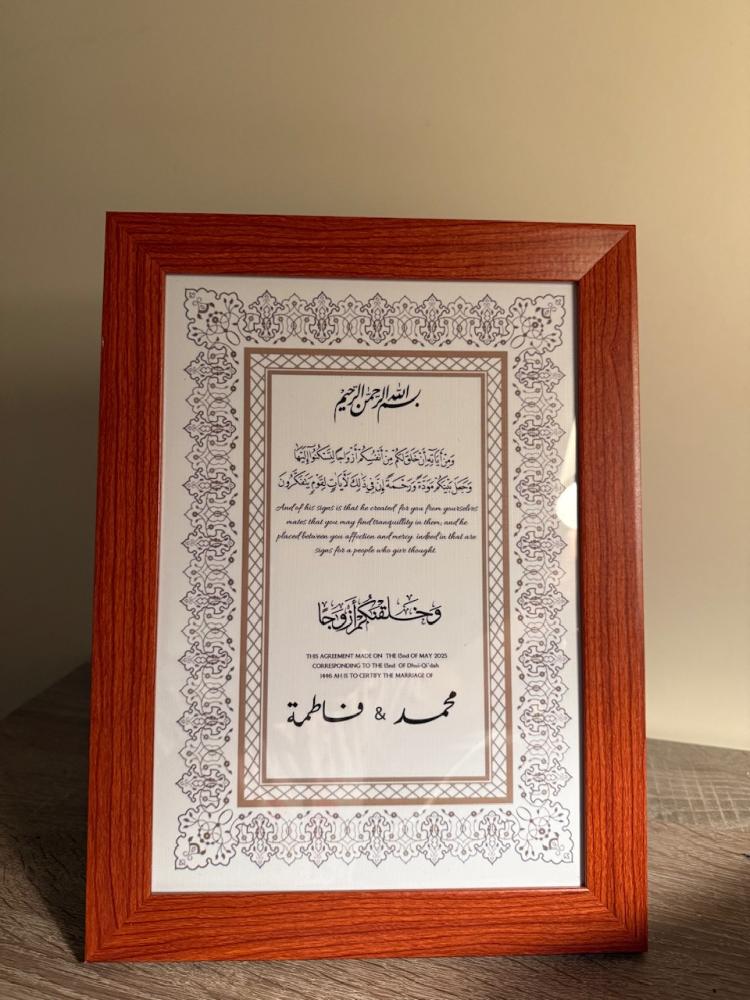 بسم الله الرحمن الرحيم
وَمِنْ أَيَاتِهِ أَنْ خَلَقَ لَكُمْ مِنْ أَنْفُسِكُمْ أَزْوَاجًا لِتَسْكُنُوا إِلَيْهَا
وَجَعَلَ بَيْنَكُمْ مَوَدَّةً وَرَحْمَةً إِنَّ فِي ذَلِكَ لَأَيَاتٍ لِقَوْمٍ يَتَفَكَّرُونَ
And of his signs is that he created for you from yourselves
mates that you may find tranquillity in them; and he
placed between you affection and mercy. indeed in that are
signs for a people who give thought.
وَخَلَقْنَكُمْ أَزْوَجًا
THIS AGREEMENT MADE ON THE 13nd OF MAY 2025
CORRESPONDING TO THE 15nd OF Dhul-Qi'dah
1446 AH IS TO CERTIFY THE MARRIAGE OF
محمد & فاطمة